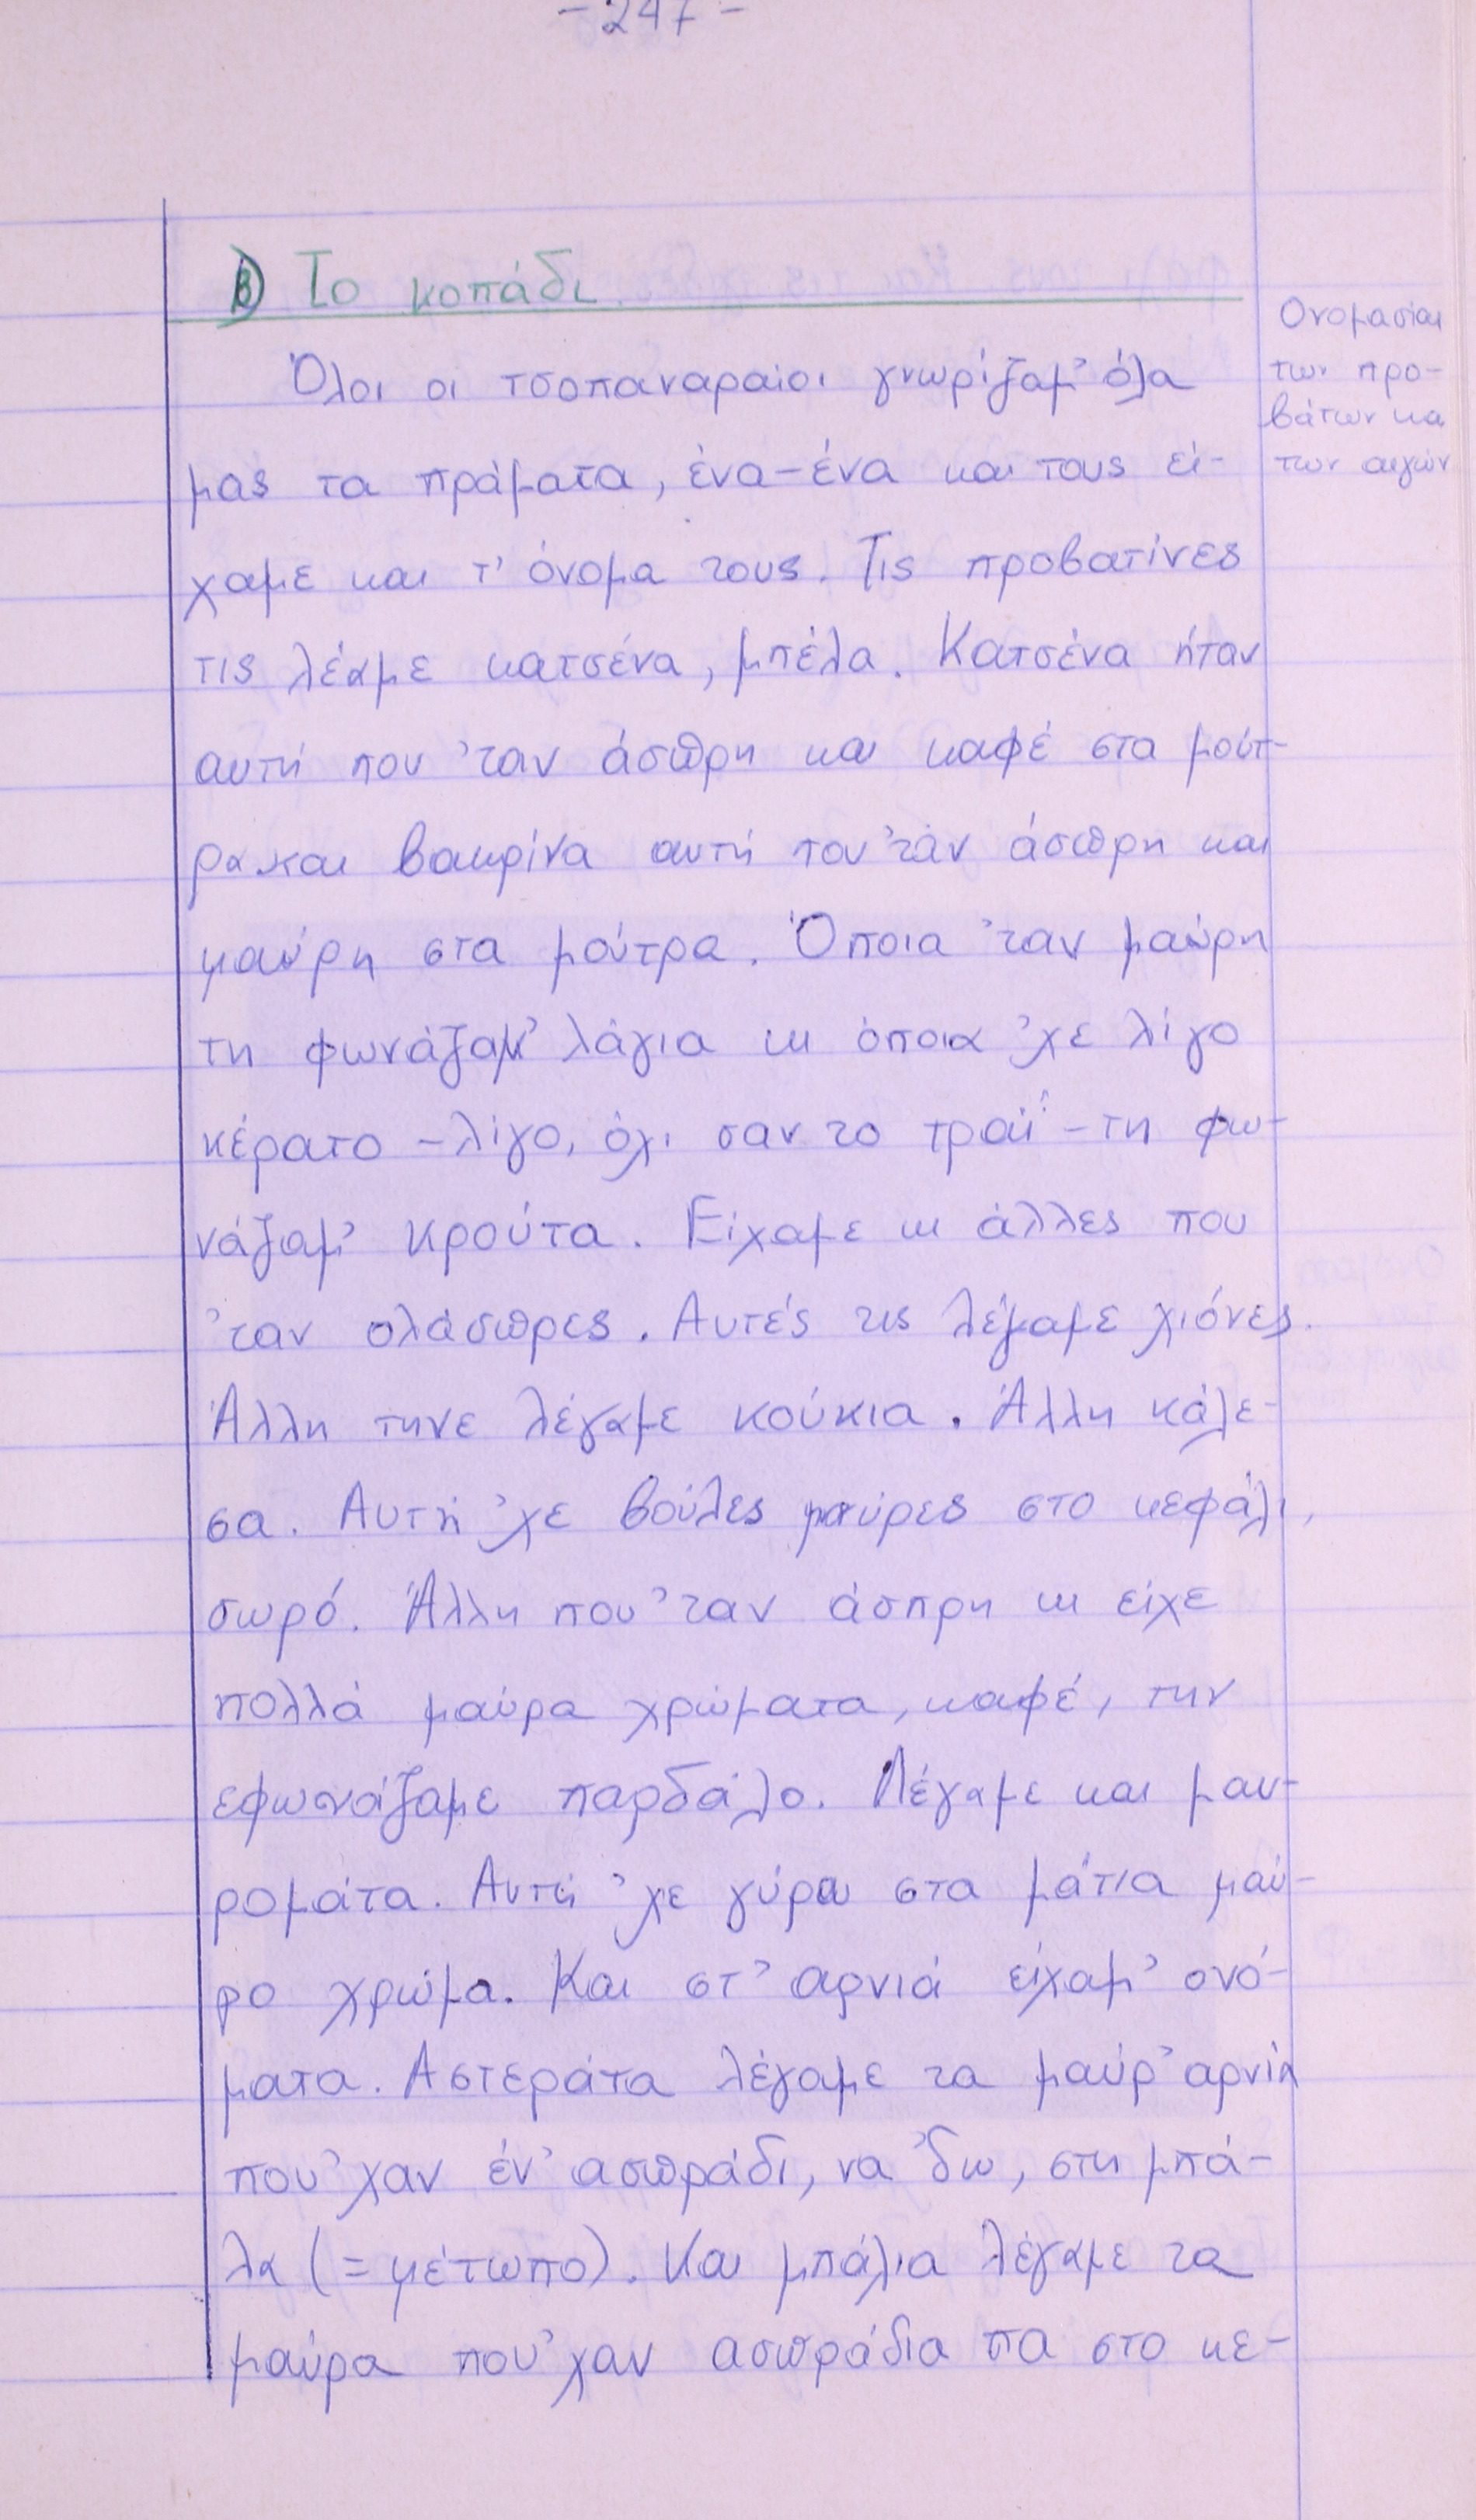 -247-
β) Το κοπάδι
Όλοι οι τσοπαναραίοι γνωρίζαμ' όλα
μας τα πράματα, ένα-ένα και τους εί-
χαμε και τ' όνομα τους. Τις προβατίνες
τις λέαμε κατσένα, μπέλα. Κατσένα ήταν
αυτή που 'ταν άσπρη και καφέ στα μούτ-
ρα και βακρίνα αυτή που 'ταν άσπρη και
μαύρη στα μούτρα. Όποια 'ταν μαύρη
τη φωνάζαμ' λάγια κι όποια 'χε λίγο
κέρατο -λίγο, όχι σαν το τραΐ- τη φω-
νάζαμ' κρούτα. Είχαμε κι άλλες που
'ταν ολάσπρες. Αυτές τις λέγαμε χιόνες.
Άλλη τηνε λέγαμε κούκια. Άλλη κάλε-
σα. Αυτή 'χε βούλες μαύρες στο κεφάλι,
σωρό. Άλλη που 'ταν άσπρη κι είχε
πολλά μαύρα χρώματα, καφέ, την
εφωνάζαμε παρδάλο. Λέγαμε και μαυ-
ρομάτα. Αυτή 'χε γύρω στα μάτια μαύ-
ρο χρώμα. Και στ' αρνιά είχαμ' ονό-
ματα. Αστεράτα λέγαμε τα μαύρ' αρνιά
που 'χαν έν' ασπράδι, να 'δω, στη μπά-
λα (= μέτωπο). Και μπάλια λέγαμε τα
μαύρα που 'χαν ασπράδια πα στο κε-
Ονομασίαι
των προ-
βάτων κα
των αιγών